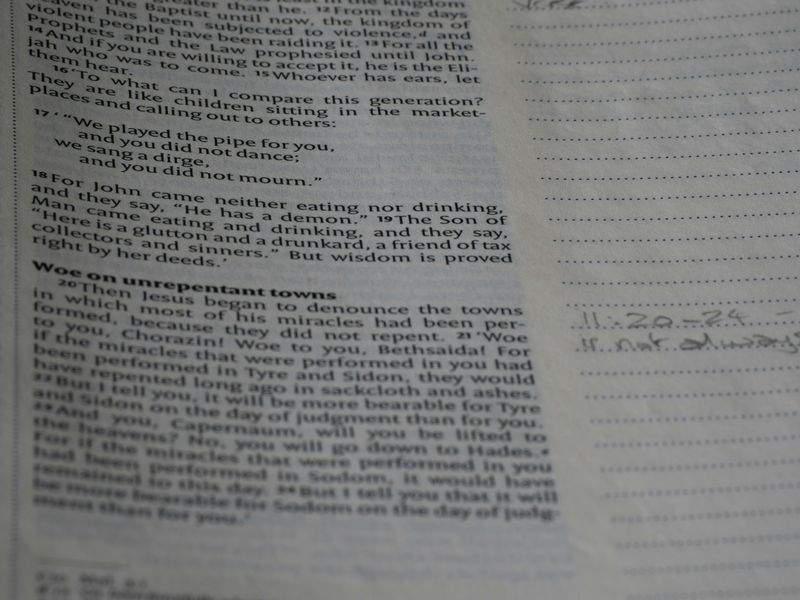 greater than he. 12 From the days
the Baptist until now, the kingdom of
violent people have been subjected to violence,d and
Prophets and the Law prophesied until John.
14 And if you are willing to accept it, he is the Eli-
jah who was to come. 15 Whoever has ears, let
them hear.
16 ‘To what can I compare this generation?
They are like children sitting in the market-
places and calling out to others:
17 ‘ “We played the pipe for you,
and you did not dance;
we sang a dirge,
and you did not mourn.”
18 For John came neither eating nor drinking,
and they say, “He has a demon.” 19 The Son of
Man came eating and drinking, and they say,
“Here is a glutton and a drunkard, a friend of tax
collectors and sinners.” But wisdom is proved
right by her deeds.’
Woe on unrepentant towns
20 Then Jesus began to denounce the towns
in which most of his miracles had been per-
formed, because they did not repent. 21 ‘Woe
to you, Chorazin! Woe to you, Bethsaida! For
if the miracles that were performed in you had
been performed in Tyre and Sidon, they would
have repented long ago in sackcloth and ashes.
22 But I tell you, it will be more bearable for Tyre
and Sidon on the day of judgment than for you.
23 And you, Capernaum, will you be lifted to
the heavens? No, you will go down to Hades.e
For if the miracles that were performed in you
had been performed in Sodom, it would have
remained to this day. 24 But I tell you that it will
be more bearable for Sodom on the day of judg-
ment than for you.’
11:20-24 -
not always